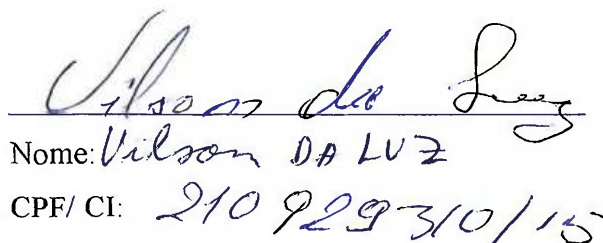 Vilson da Luz
Nome: Vilson DA LUZ
CPF/ CI: 210929310/15